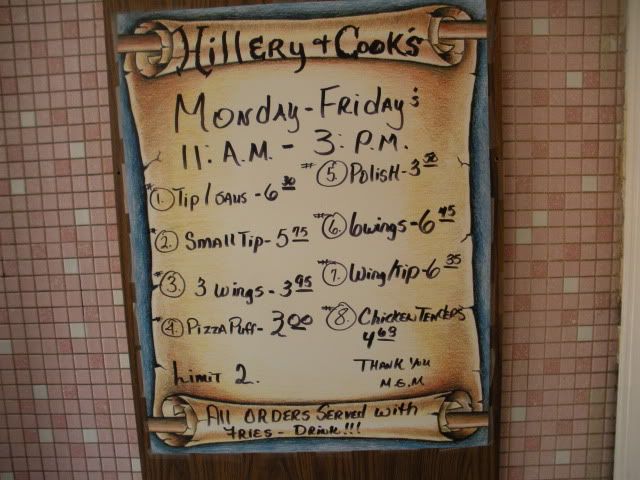 Hillery + Cook's
Monday - Friday's
11: A.M. - 3: P.M.
#1. Tip / Saus - 6 30
#2. Small Tip - 5 75
#3. 3 wings - 3 95
#4. Pizza Puff - 3 00
#5. Polish - 3 50
#6. 6 wings - 6 45
#7. Wing/tip - 6 35
#8. Chicken Tenders
4 69
Limit 2.
Thank You
M.G.M
All orders Served with
Fries - Drink!!!